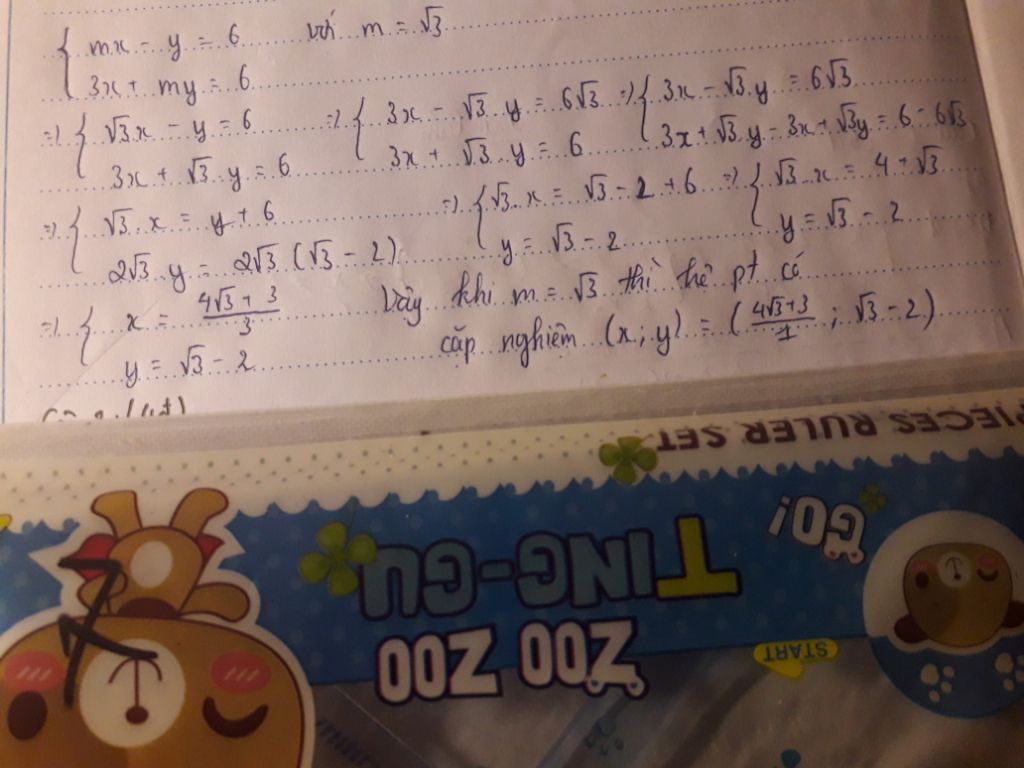 { mx - y = 6 với m = √3
{ 3x + my = 6
=> { √3.x - y = 6 => { 3x - √3.y = 6√3 => { 3x - √3.y = 6√3
{ 3x + √3.y = 6 { 3x + √3.y = 6 { 3x + √3.y - 3x + √3y = 6 - 6√3
=> { √3.x = y + 6 => { √3.x = √3 - 2 + 6 => { √3.x = 4 + √3
{ 2√3.y = 2√3(√3 - 2) { y = √3 - 2 { y = √3 - 2
=> { x = (4√3 + 3)/3 Vậy khi m = √3 thì hệ pt có
{ y = √3 - 2 cặp nghiệm (x; y) = ((4√3+3)/1; √3 - 2)
PIECES RULER SET
GO!
TING-GU
ZOO ZOO
START